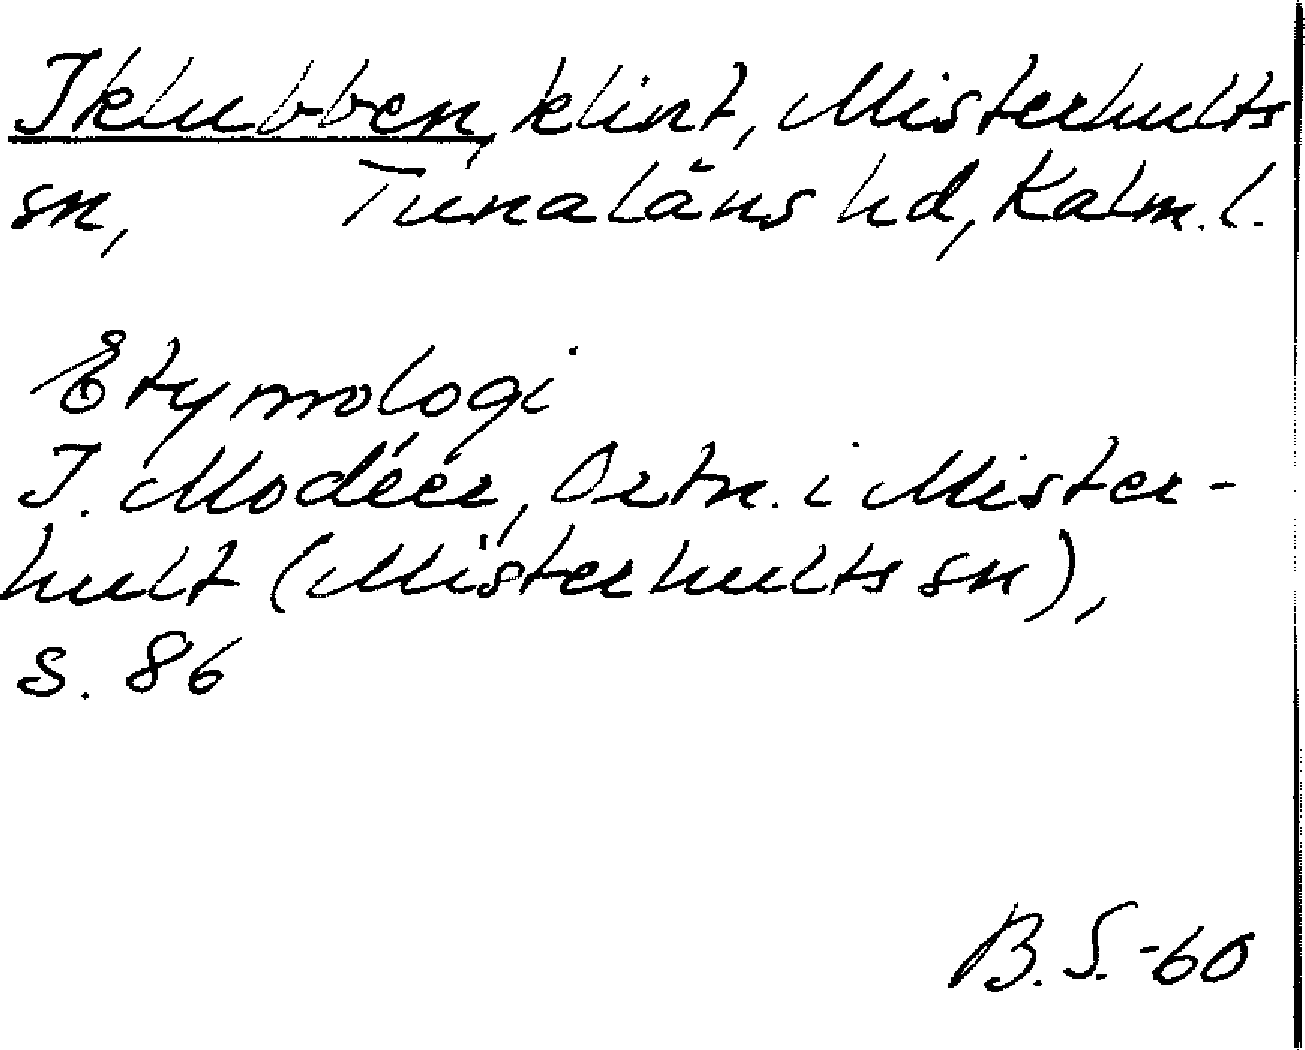 Iklubben, klint, Misterhults
sn, Tunaläns hd, Kalm. l.
Etymologi
I. Modéer, Ortn. i Mister-
hult (Misterhults sn),
s. 86
B.S.-60